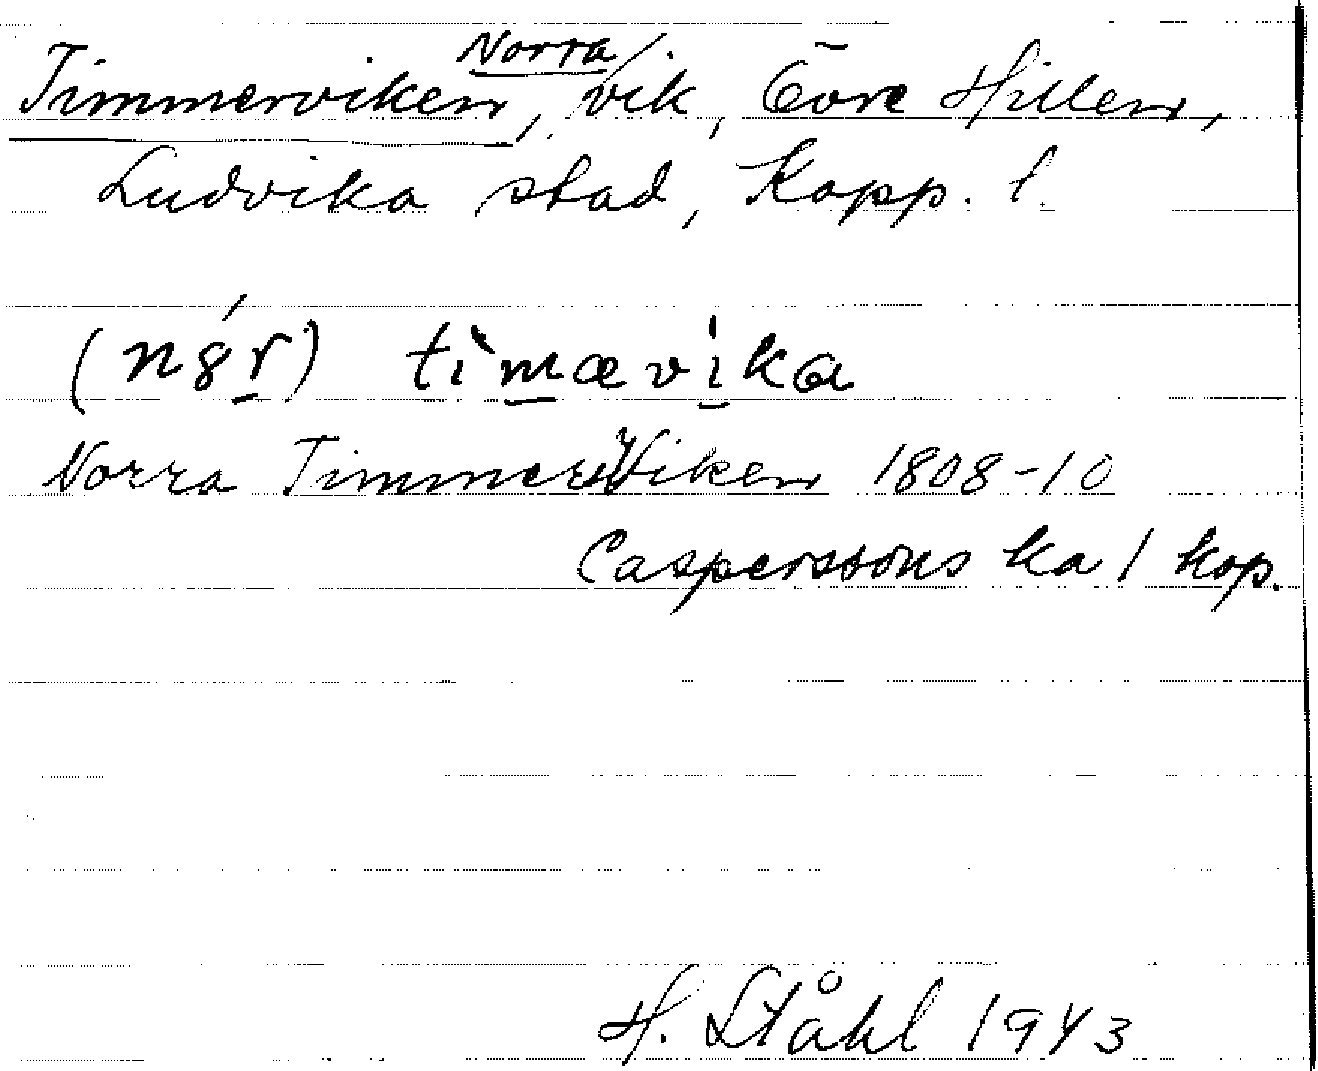 Timmerviken, Norra, vik, Övre Hillen,
Ludvika stad, Kopp. l.
(nór) tìmævika
Norra TimmerViken 1808-10
Casperssons ka 1 kop.
H. Ståhl 1943